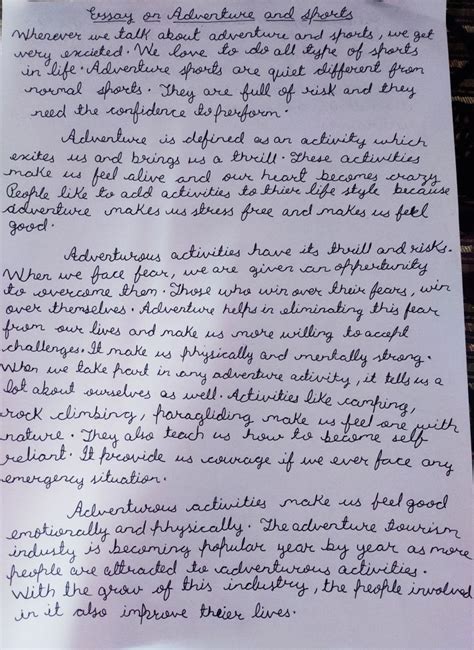 Essay on Adventure and Sports
Whenever we talk about adventure and sports, we get
very excieted. We love to do all type of sports
in life. Adventure sports are quiet different from
normal sports. They are full of risk and they
need the confidence to perform.
Adventure is defined as an activity which
exites us and brings us a thrill. These activities
make us feel alive and our heart becomes crazy
People like to add activities to thier life style because
adventure makes us stress free and makes us feel
good.
Adventurous activities have its thrill and risks.
When we face fear, we are given an opportunity
to overcome them. Those who win over their fears, win
over themselves. Adventure helps in eliminating this fear
from our lives and make us more willing to accept
challenges. It make us physically and mentally strong.
When we take part in any adventure activity, it tells us a
lot about ourselves as well. Activities like camping,
rock climbing, paragliding make us feel one with
nature. They also teach us how to become self
reliant. It provide us courage if we ever face any
emergency situation.
Adventurous activities make us feel good
emotionally and physically. The adventure tourism
industy is becoming popular year by year as more
people are attracted to adventurous activities.
With the grow of this industry, the people involved
in it also improve their lives.